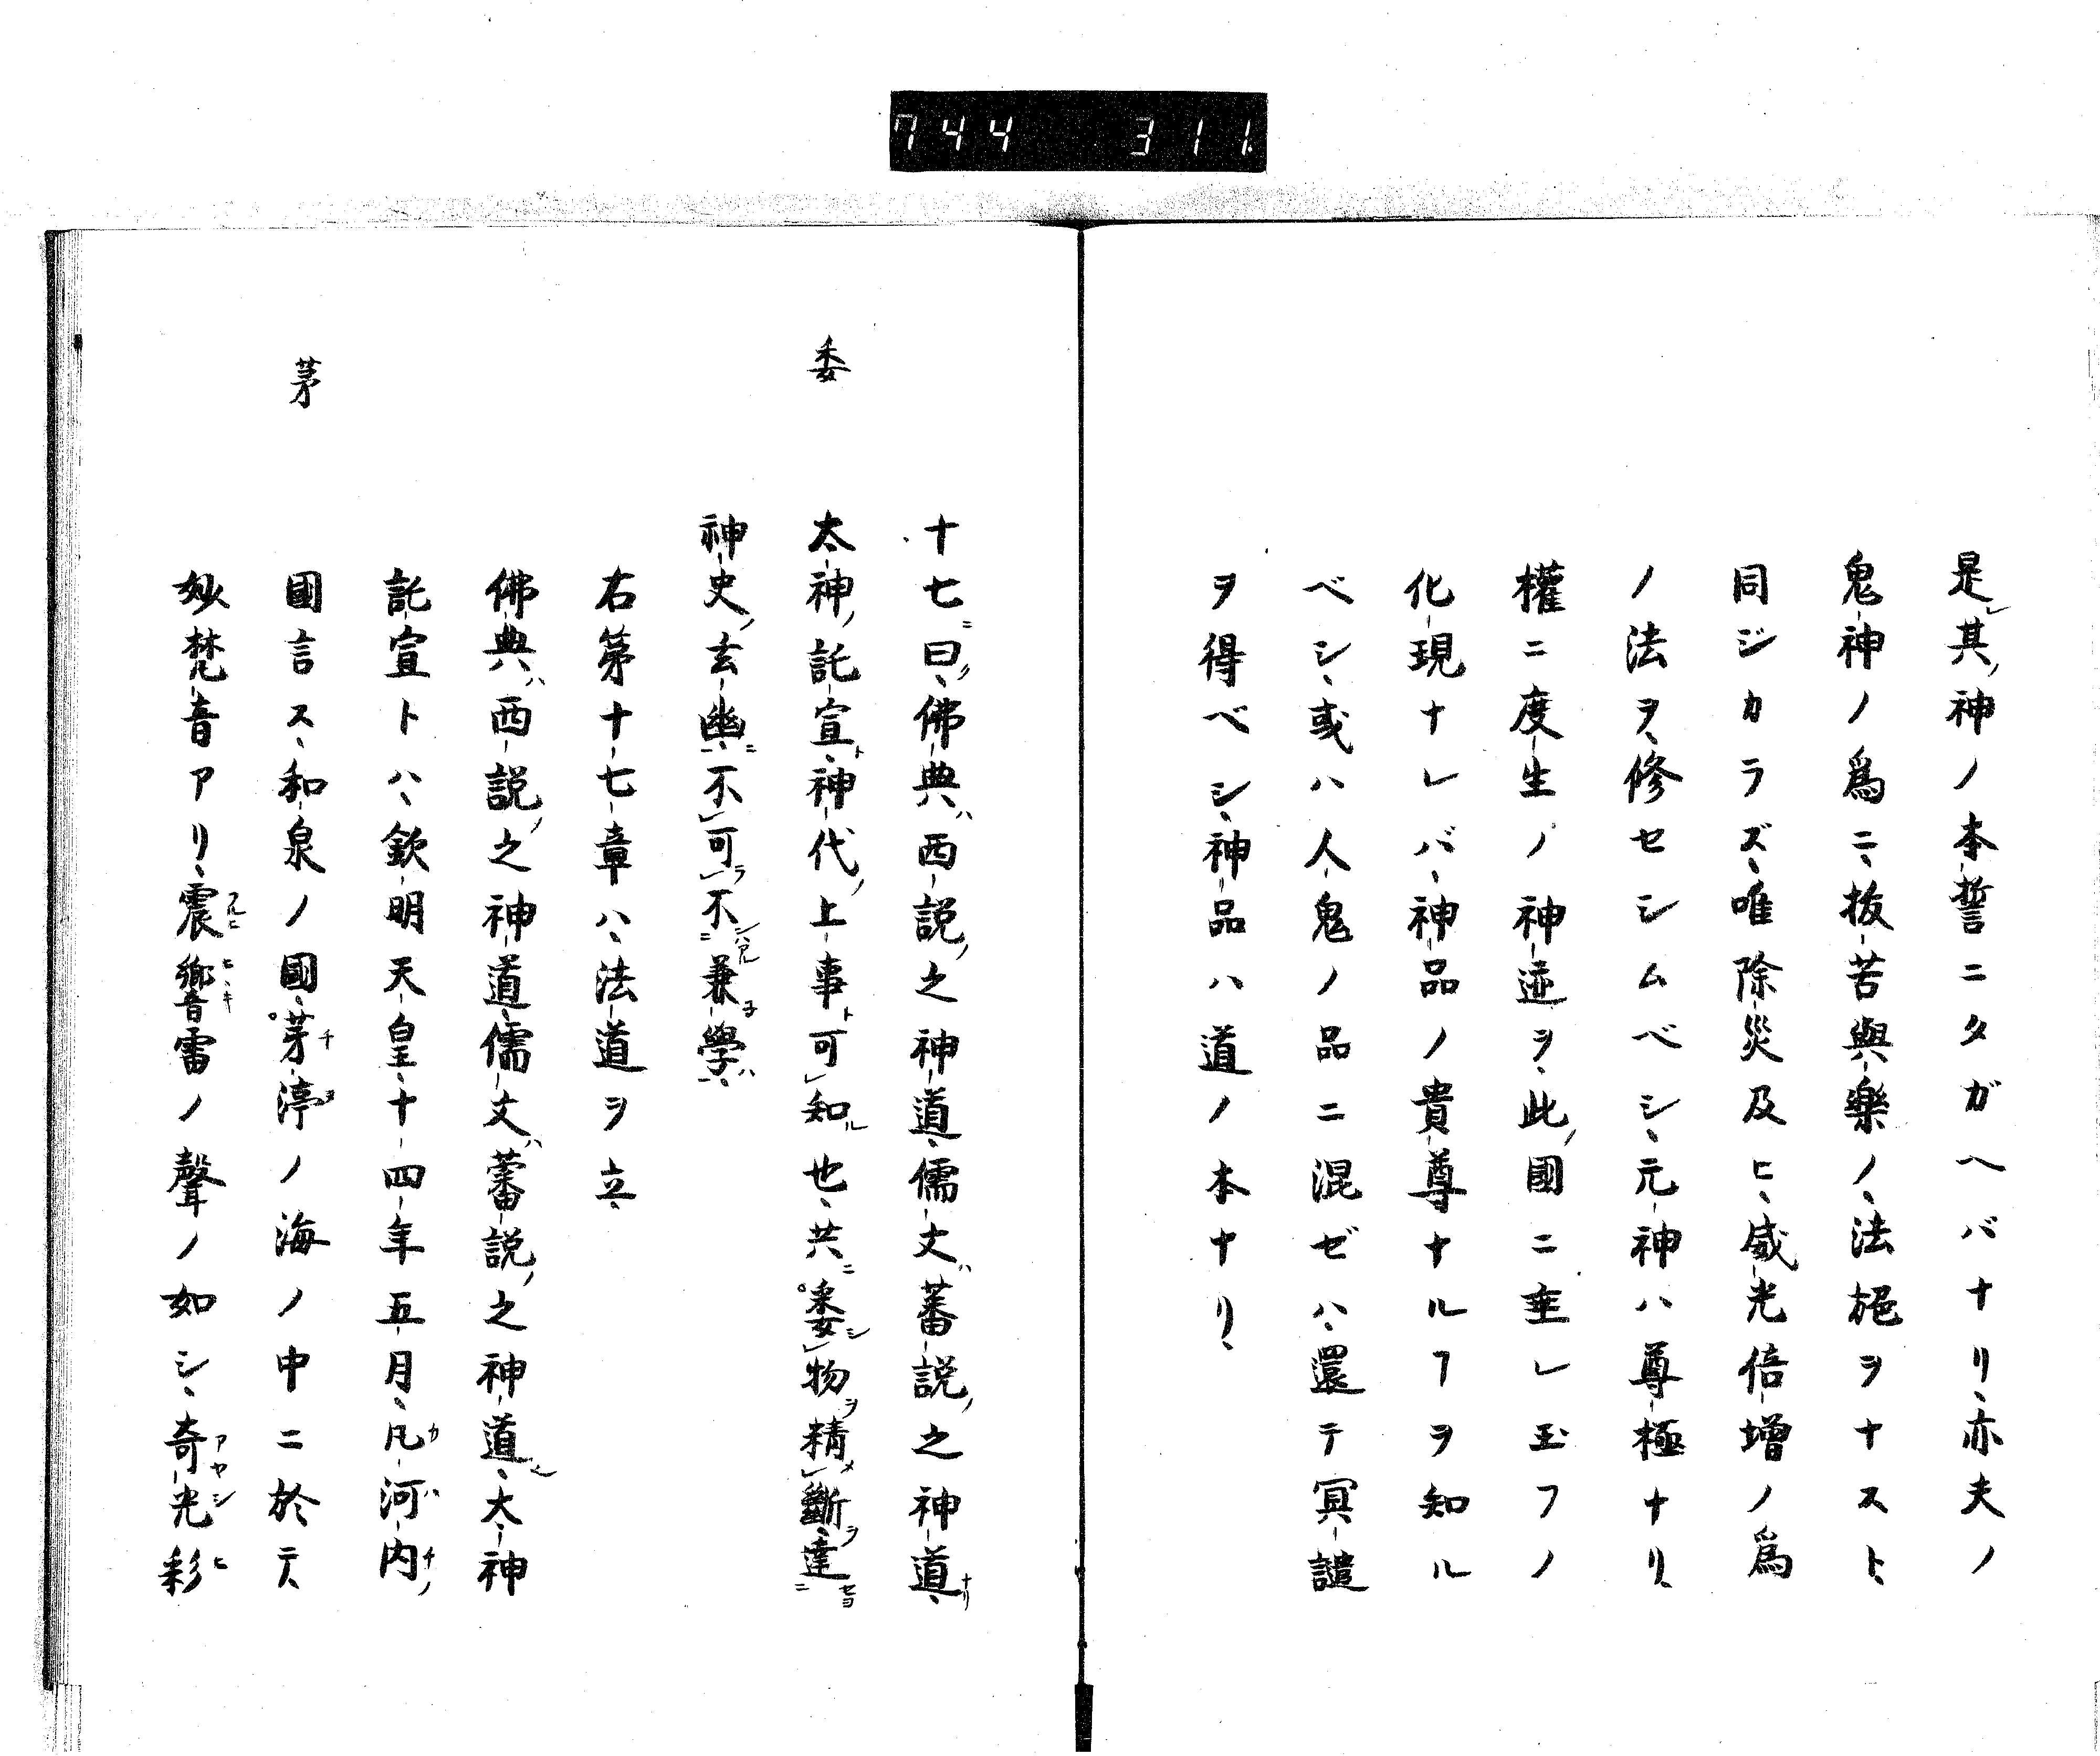 744 311
是其ノ神ノ本誓ニタガヘバナリ、亦夫ノ
鬼神ノ爲ニ、抜苦與樂ノ、法𦲷ヲナスト、
同ジカラズ、唯除災及ヒ、威光倍増ノ爲
ノ法ヲ、修セシムベシ、元神ハ尊極ナリ、
權ニ度生ノ神迹ヲ、此ノ國ニ垂レ玉フノ
化現ナレバ、神品ノ貴尊ナルヿヲ知ル
ベシ、或ハ人鬼ノ品ニ混ゼハ、還テ冥譴
ヲ得ベシ、神品ハ道ノ本ナリ、
十七ニ曰ク、佛典ハ西説ノ之神道、儒文ハ蕃説ノ之神道ナリ、
委
太神ノ託宣ト、神代ノ上事ト可レ知ル也、共ニ委シレ物ヲ精メレ斷ヲ、達セヨ二
神史ノ玄幽一ニ、不レ可ラレ不ンハアル二兼子學一ハ、
右第十七章ハ、法道ヲ立、
佛典ハ西説ノ之神道、儒文ハ蕃説ノ之神道ト、大神
託宣トハ、欽明天皇、十四年五月、凡河内カハチノ
茅
國言ス、和泉ノ國、茅渟チヌノ海ノ中ニ於テ、
妙梵音アリ、震フルヒ響ヒヾキ雷ノ聲ノ如シ、奇アヤシヒ光彩